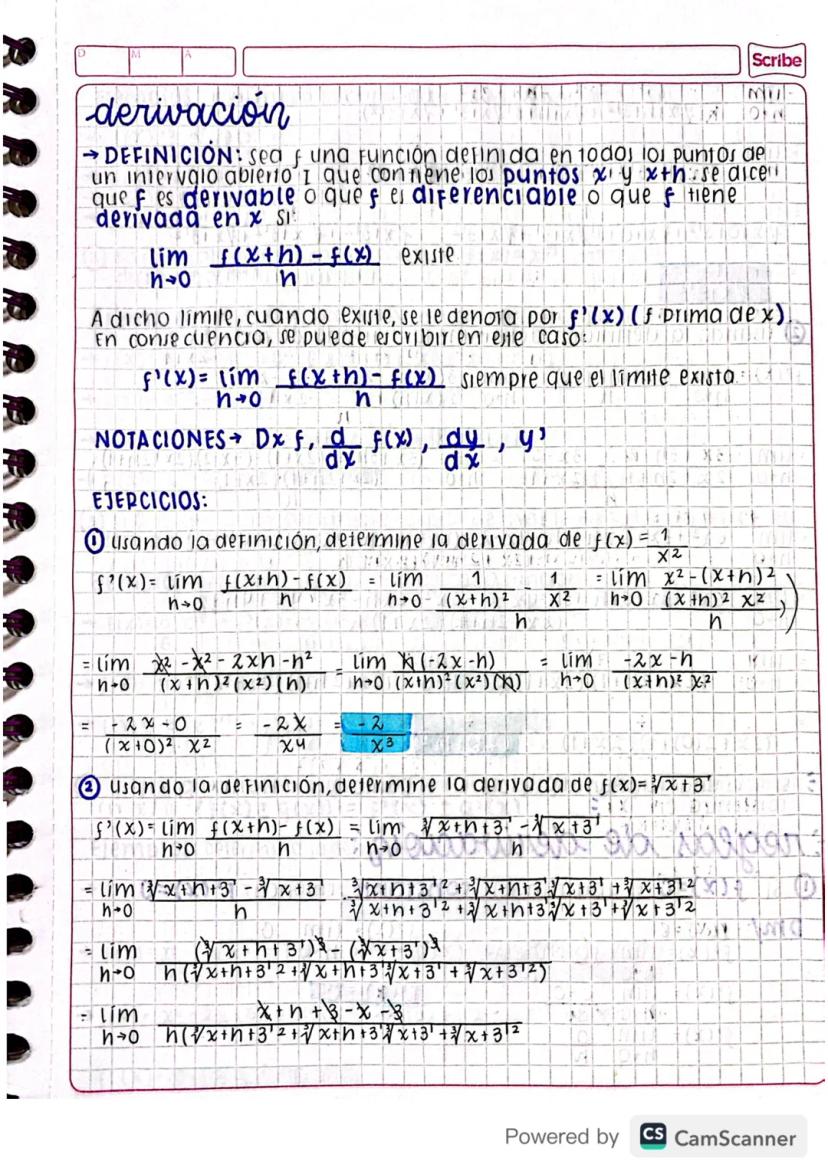 D M A
Scribe
derivación
→ DEFINICIÓN: sea f una función definida en todos los puntos de
un intervalo abierto I que contiene los puntos x y x+h. se dice
que f es derivable o que f es diferenciable o que f tiene
derivada en x si
lím f(x+h) - f(x) existe
h→0 h
A dicho límite, cuando existe, se le denota por f'(x) (f prima de x).
En consecuencia, se puede escribir en este caso:
f'(x) = lím f(x+h) - f(x) siempre que el límite exista
h→0 h
NOTACIONES → Dx f, d/dx f(x), dy/dx, y'
EJERCICIOS:
① usando la definición, determine la derivada de f(x) = 1/x²
f'(x) = lím h→0 (f(x+h) - f(x))/h = lím h→0 (1/(x+h)² - 1/x²)/h = lím h→0 ((x² - (x+h)²)/((x+h)² x²))/h
= lím h→0 (x² - x² - 2xh - h²)/((x+h)²(x²)(h)) = lím h→0 h(-2x-h)/((x+h)²(x²)(h)) = lím h→0 (-2x-h)/((x+h)² x²)
= (-2x-0)/((x+0)² x²) = -2x/x⁴ = -2/x³
② usando la definición, determine la derivada de f(x) = ∛x+3
f'(x) = lím h→0 (f(x+h) - f(x))/h = lím h→0 (∛x+h+3 - ∛x+3)/h
= lím h→0 (∛x+h+3 - ∛x+3)/h · (∛x+h+3² + ∛x+h+3 ∛x+3 + ∛x+3²)/(∛x+h+3² + ∛x+h+3 ∛x+3 + ∛x+3²)
= lím h→0 ((∛x+h+3)³ - (∛x+3)³)/(h(∛x+h+3² + ∛x+h+3 ∛x+3 + ∛x+3²))
= lím h→0 (x+h+3-x-3)/(h(∛x+h+3² + ∛x+h+3 ∛x+3 + ∛x+3²
Powered by CS CamScanner